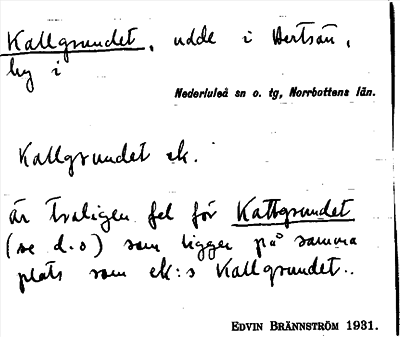 Kallgrundet, udde i Hertsön,
by i
Nederluleå sn o. tg, Norrbottens län.
Kallgrundet ek.
är troligen fel för Kattgrundet
(se d.o) som ligger på samma
plats som ek:s Kallgrundet..
EDVIN BRÄNNSTRÖM 1931.